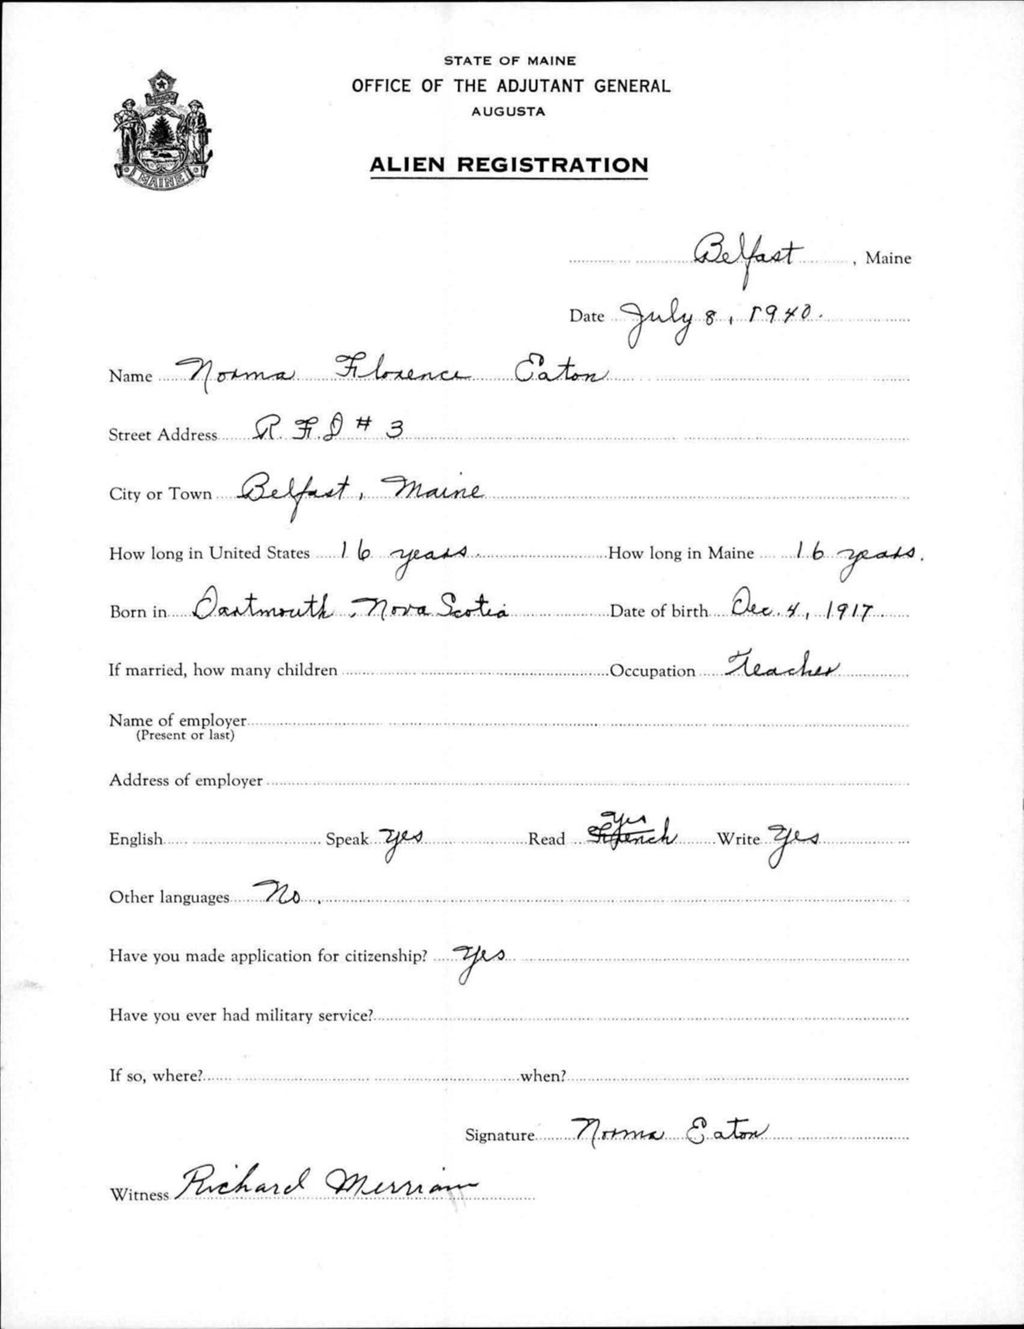 STATE OF MAINE
OFFICE OF THE ADJUTANT GENERAL
AUGUSTA
ALIEN REGISTRATION
MAINE
Belfast, Maine
Date July 8, 1940.
Name Norma Florence Eaton
Street Address R.F.D # 3
City or Town Belfast, Maine
How long in United States 16 years. How long in Maine 16 years.
Born in Dartmouth, Nova Scotia Date of birth Dec. 4, 1917
If married, how many children Occupation Teacher
Name of employer
(Present or last)
Address of employer
Yes
English Speak Yes Read French Write Yes
Other languages No.
Have you made application for citizenship? Yes
Have you ever had military service?
If so, where? when?
Signature Norma Eaton
Witness Richard Merriam